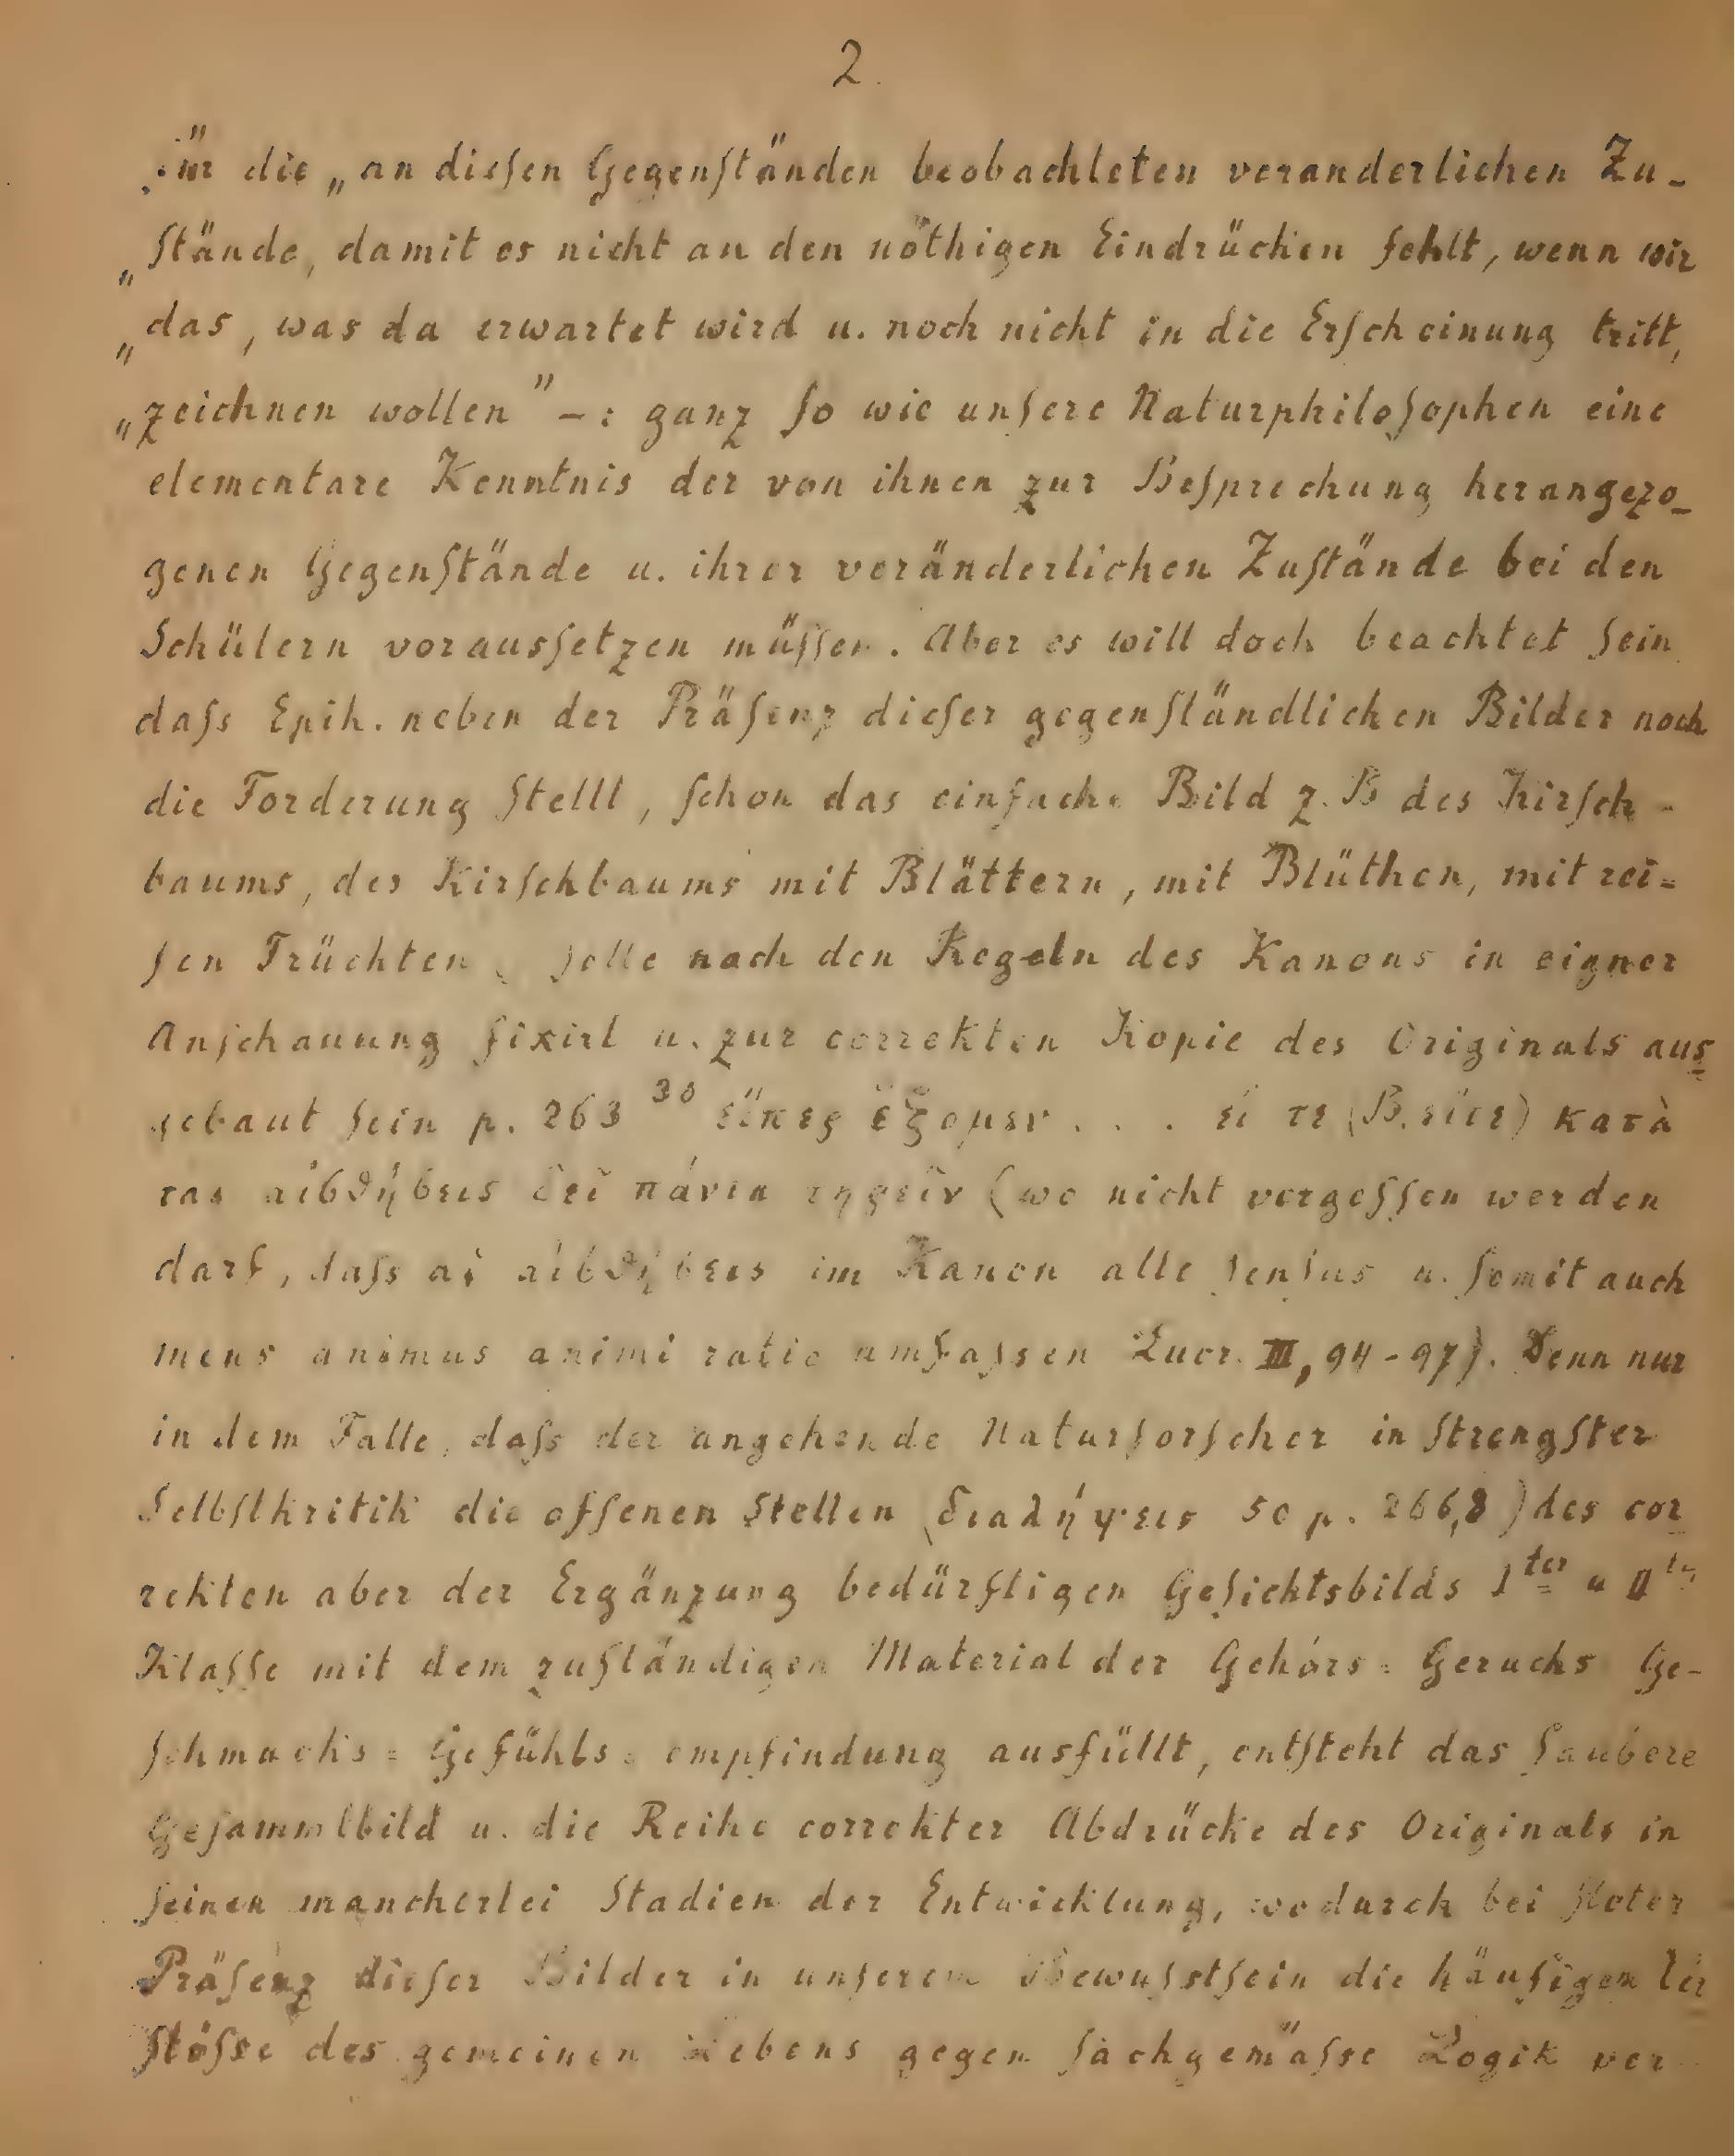 2.
für die „an diesen Gegenständen beobachteten veranderlichen Zu-
„stände, damit es nicht an den nöthigen Eindrücken fehlt, wenn wir
„das, was da erwartet wird u. noch nicht in die Erscheinung tritt,
„zeichnen wollen" –: ganz so wie unsere Naturphilosophen eine
elementare Kenntnis der von ihnen zur Besprechung herangezo-
genen Gegenstände u. ihrer veränderlichen Zustände bei den
Schülern voraussetzen müssen. Aber es will doch beachtet sein
dass Epik. neben der Präsenz dieser gegenständlichen Bilder noch
die Forderung stellt, schon das einfache Bild z. B des Kirsch-
baums, des Kirschbaums mit Blättern, mit Blüthen, mit rei=
fen Früchten, solle nach den Regeln des Kanons in eigner
Anschauung fixirt u. zur correkten Kopie des Originals aus
gebaut sein p. 263 30 εἵπερ ἕξομεν . . . εἴ τε (B. εἴτε) κατὰ
τας αἰσθήσεις δεῖ πάντα τηρεῖν (wo nicht vergessen werden
darf, dass αἱ αἰσθήσεις im Kanon alle sensus u. somit auch
mens animus animi ratio umfassen Lucr. III, 94-97). Denn nur
in dem Falle, dass der angehende Naturforscher in strengster
Selbstkritik die offenen Stellen (διαλήψεις 50 p. 266,8) des cor
rekten aber der Ergänzung bedürftigen Gesichtsbilds Iter u IIter
Klasse mit dem zuständigen Material der Gehörs= Geruchs Ge-
schmacks= Gefühls= empfindung ausfüllt, entsteht das saubere
Gesammtbild u. die Reihe correkter Abdrücke des Originals in
seinen mancherlei Stadien der Entwicklung, wodurch bei steter
Präsenz dieser Bilder in unserem Bewusstsein die häufigen Ver
stösse des gemeinen Lebens gegen sachgemässe Logik ver